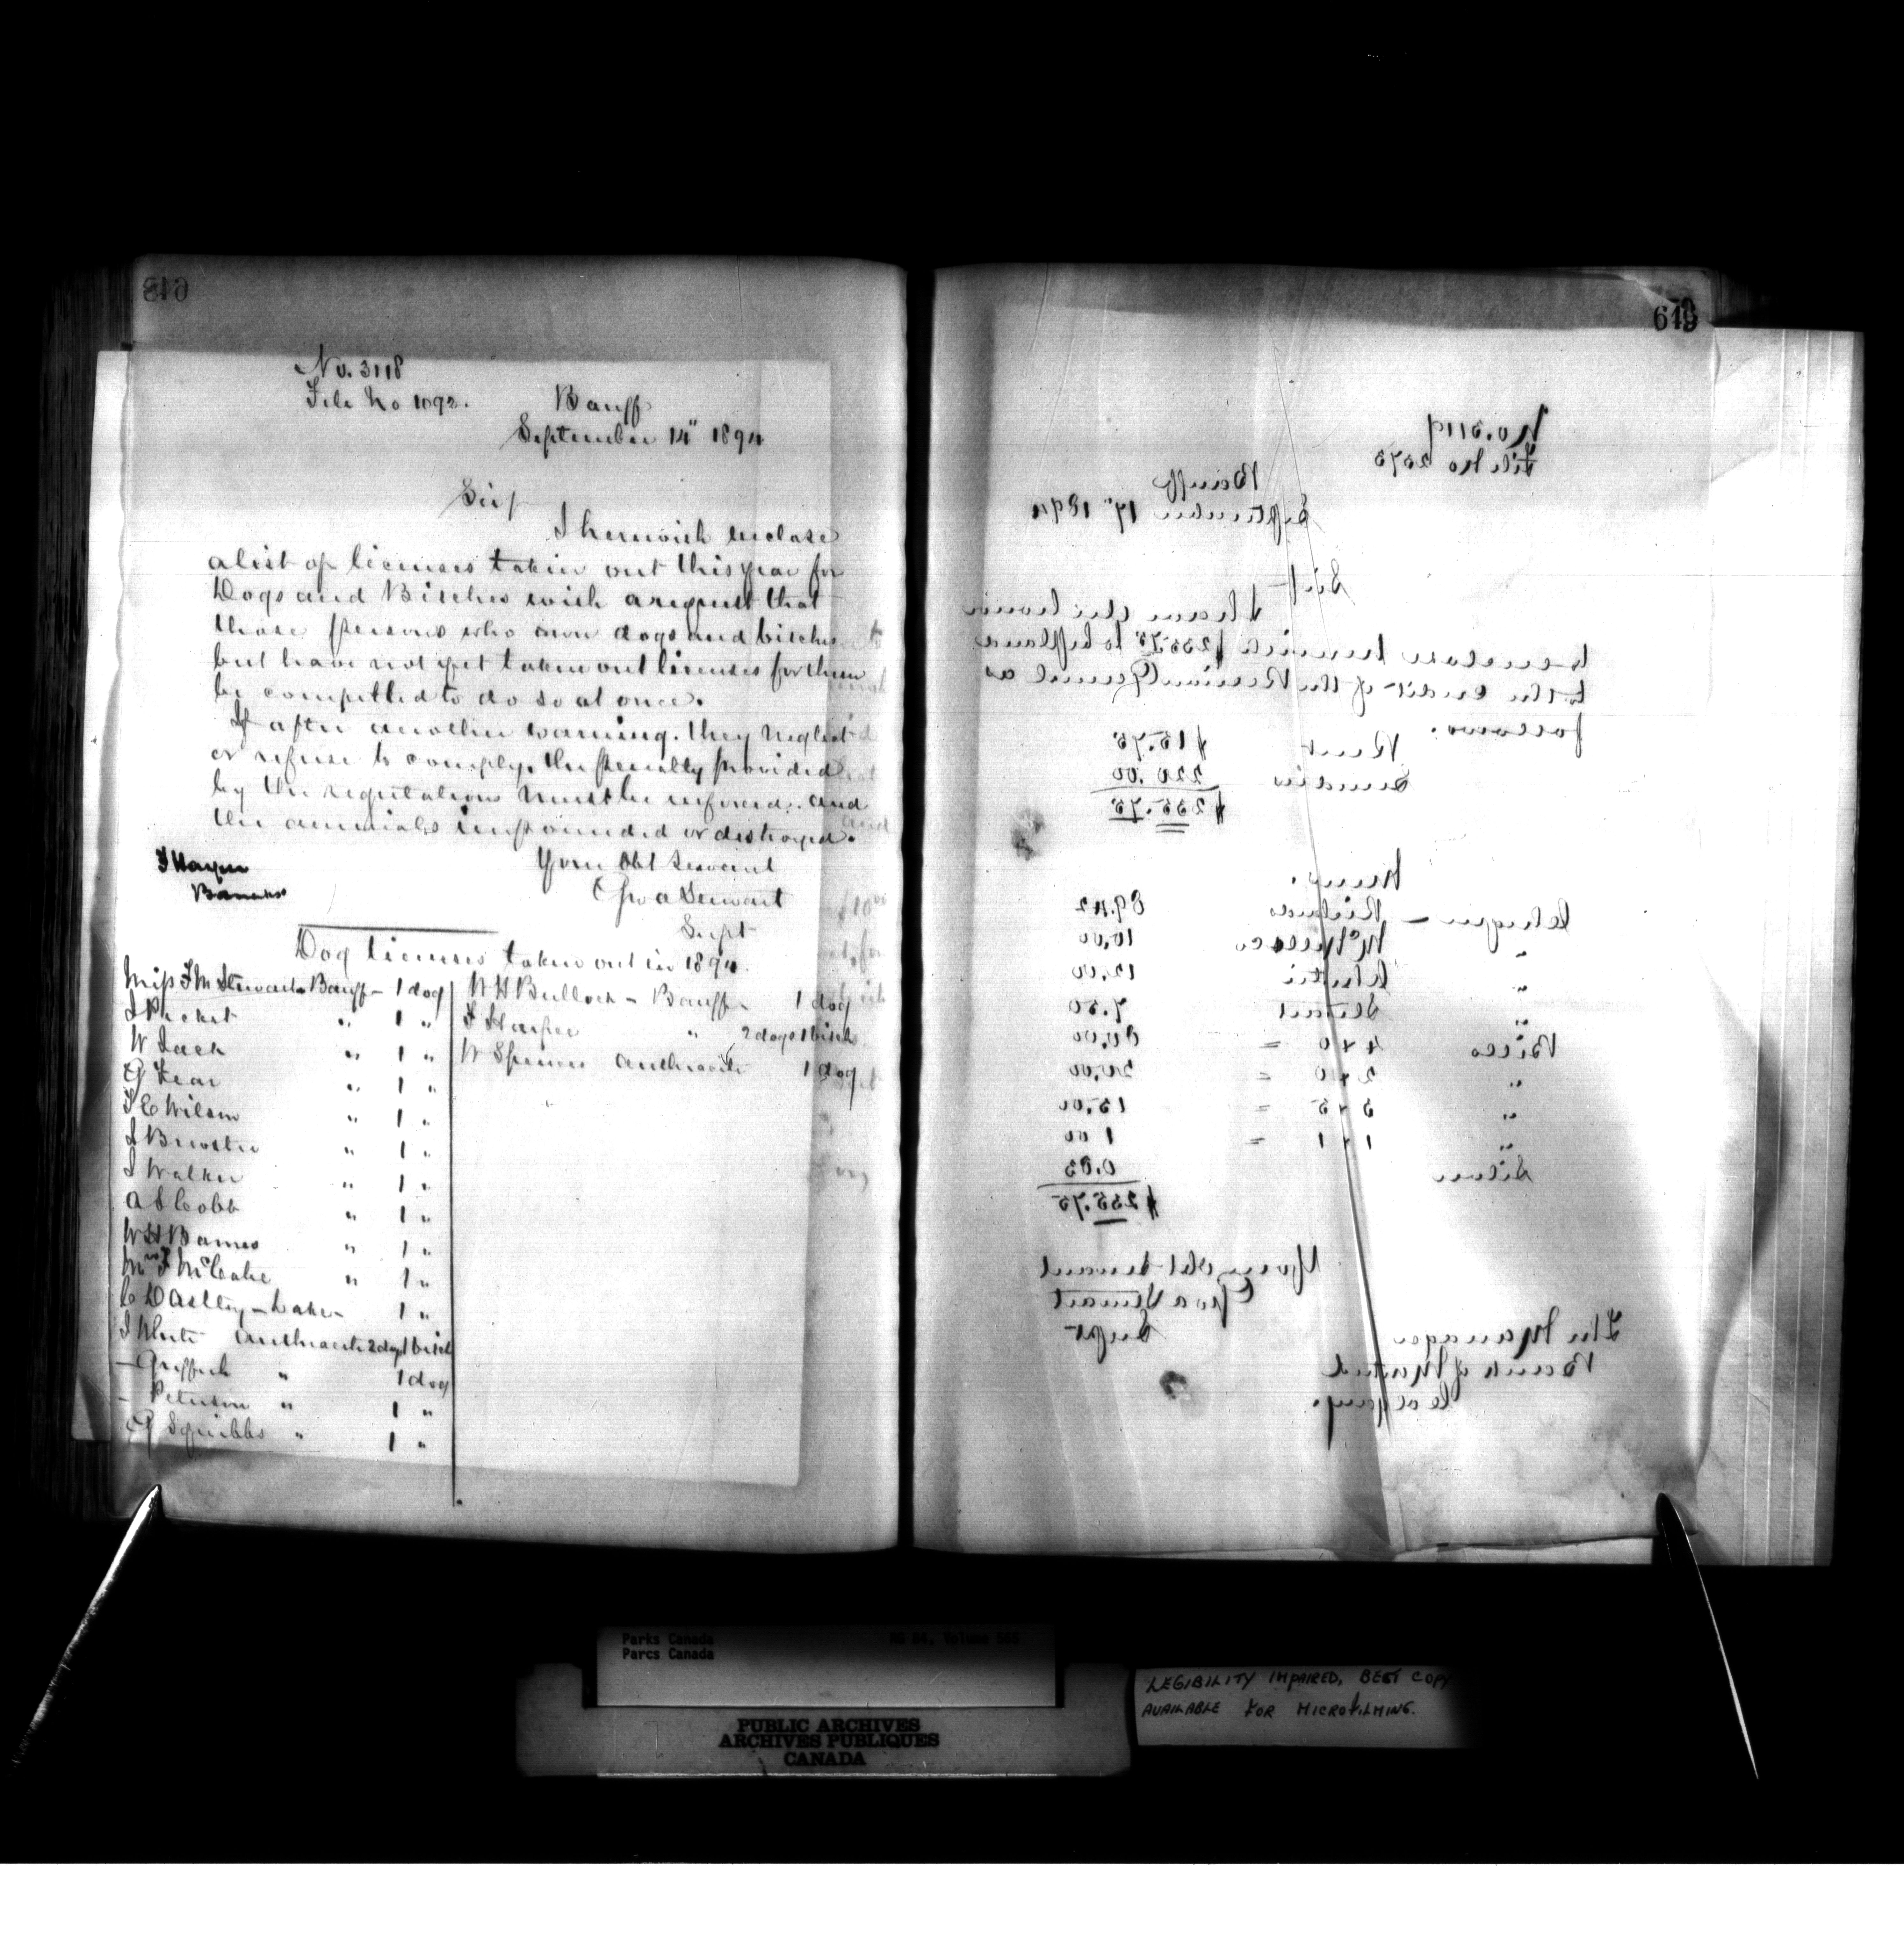 No. 3118
File No 1092.
Banff
September 14" 1894
Sir/
I herewith enclose
a list of licenses taken out this year for
Dogs and Bitches with a request that
those persons who own dogs and bitches
but have not yet taken out licenses for them
be compelled to do so at once.
If after another warning. they neglect
or refuse to comply, the penalty provided
by the regulations must be enforced. and
the animals impounded or destroyed.
Your Obt Servant
Geo A Stewart
Supt
J Harper
Dog licenses taken out in 1894.
Miss F M Stewart Banff - 1 dog
J Picket " 1 "
W Jack " 1 "
G Fear " 1 "
T E Wilson " 1 "
J Brewster " 1 "
J Walker " 1 "
A S Cobb " 1 "
W H Barnes " 1 "
Mrs J McCabe " 1 "
C D Astley - Lake - 1 "
J White Anthracite 2 dogs 1 bitch
- Griffith " 1 dog
- Peterson " 1 "
G Squibbs " 1 "
W H Bullock - Banff - 1 dog
J Harper " 2 dogs 1 bitch
W Spencer Anthracite 1 dog
649
No. 3119
File No 2573
Banff
September 17" 1894
Sir/-
I have the honour
to enclose herewith $235.75 to be placed
to the credit of the Receiver General as
follows.
Rent $15.75
Sundries 220.00
$235.75
Cheques -
10.00
" 12.00
" Stewart 7.50
Bills 4 x 0 =
" 2 x 10 = 20.00
" 3 x 5 = 15.00
" 1 x 1 = 1 00
Silver 0.83
$235.75
Your Obt Servant
Geo A Stewart
Supt
The Manager
Bank of Montreal
Calgary.
Parks Canada
Parcs Canada
RG 84, Volume
PUBLIC ARCHIVES
ARCHIVES PUBLIQUES
CANADA
LEGIBILITY IMPAIRED, BEST COPY
AVAILABLE FOR MICROFILMING.